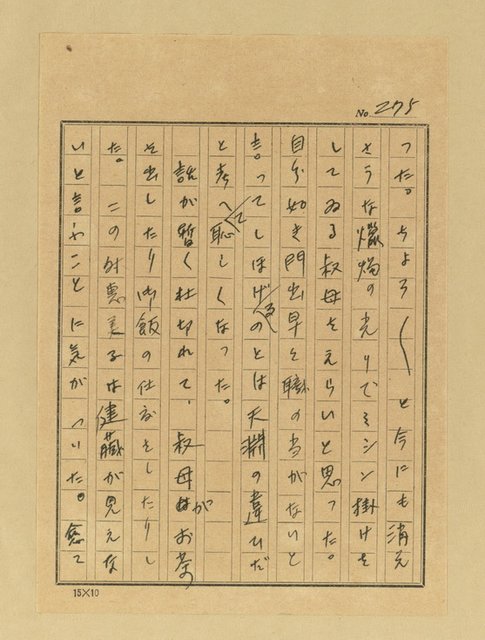 No. 275
つた。ちよろ〳〵と今にも消え
さうな蠟燭の光りでミシン掛けを
してゐる叔母をえらいと思つた。
自分如き門出早々職の当がないと
言つてしほげるのとは天淵の違ひだ
と考へて恥しくなつた。
話が暫く杜切れて、叔母がお茶
を出したり御飯の仕度をしたりし
た。この時恵美子は健蔵が見えな
いと言ふことに気がついた。急て
15×10